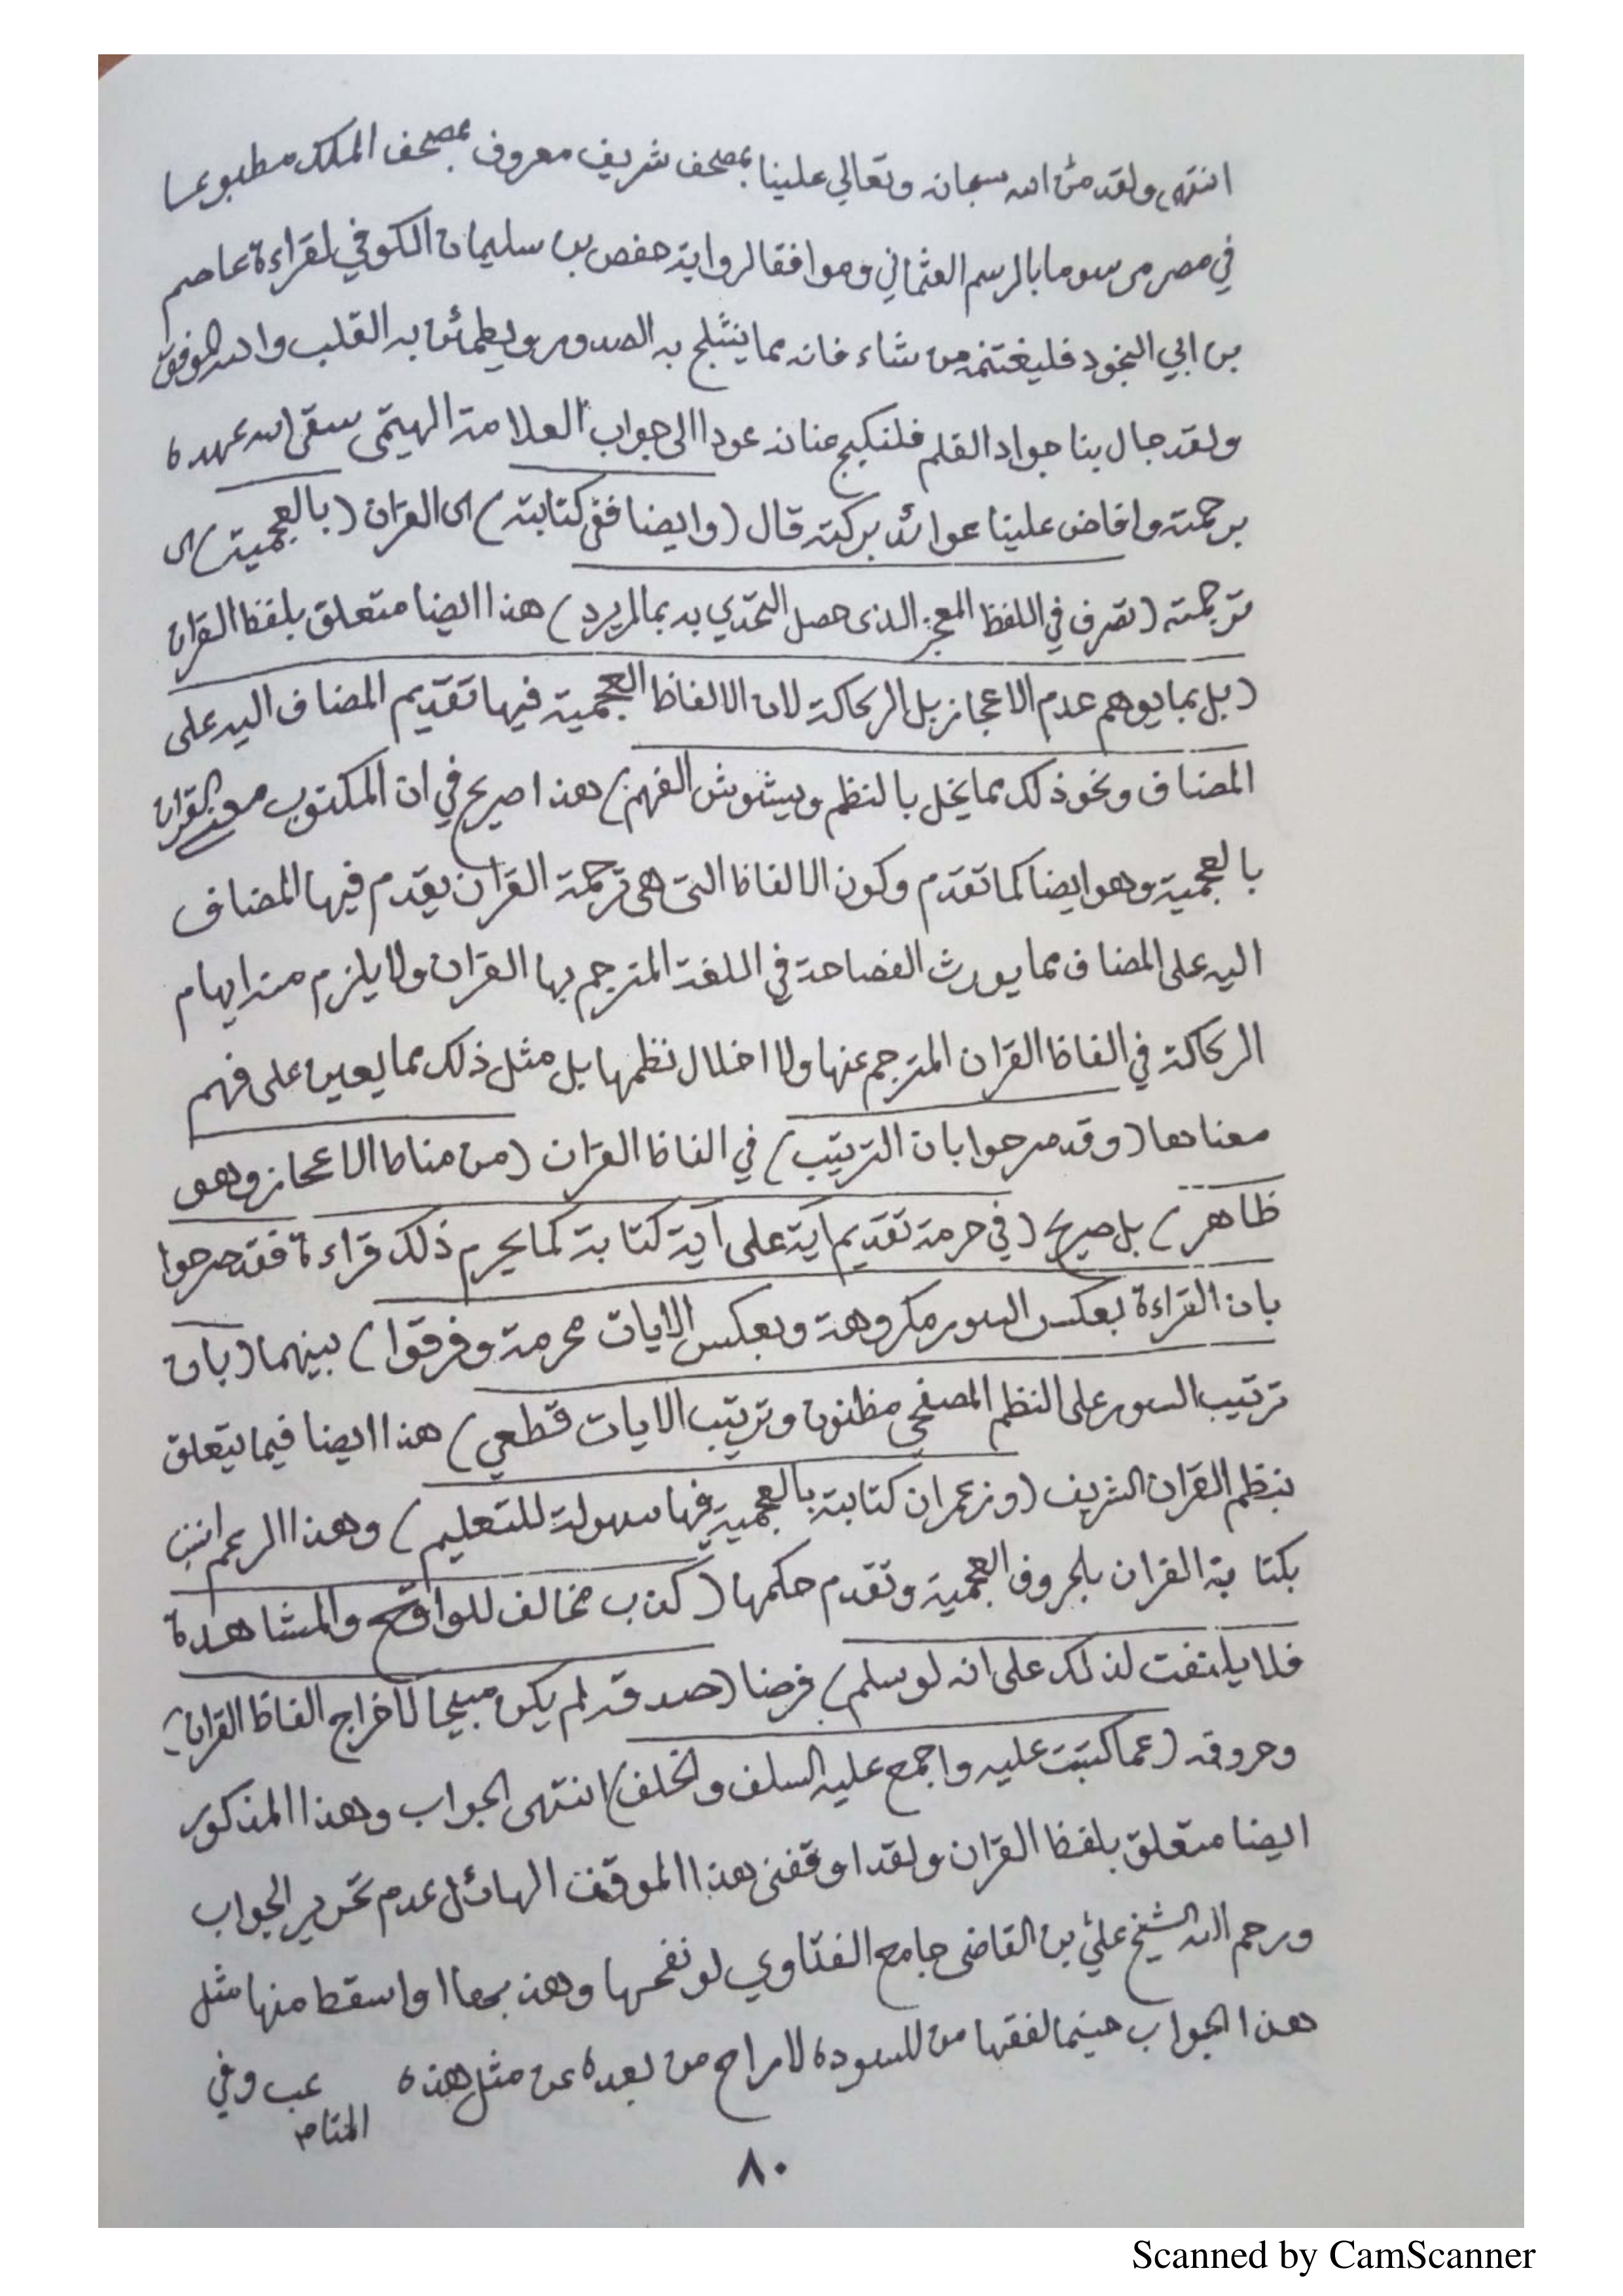 انتهى ولقد منّ الله سبحانه وتعالي علينا بمصحف شريف معروف بمصحف الملك مطبوعا
في مصر مرسوما بالرسم العثماني وموافقا لرواية حفص بن سليمان الكوفي لقراءة عاصم
بن ابي النجود فليغتنمه من شاء فانه مما ينثلج به الصدور ويطمائن به القلب والله الموفق
ولقد جال بنا جواد القلم فلنكبح عنانه عودا الى جواب العلامة الهيتمى سقى الله عهده
برحمته وافاض علينا عوائد بركته قال (وايضا ففى كتابته) اى القرآن (بالعجمية) اى
ترجمته (تصرف في اللفظ المعجز الذى حصل التحدّي به بما لم يرد) هذا ايضا متعلق بلفظ القران
(بل بما يوهم عدم الاعجاز بل الركاكة لان الالفاظ العجمية فيها تقديم المضاف اليه على
المضاف ونحو ذلك مما يخل بالنظم ويشوش الفهم) هذا صريح في ان المكتوب معنى القران
بالعجمية وهو ايضا كما تقدم وكون الالفاظ التى هى ترجمة القرآن يقدم فيها المضاف
اليه على المضاف مما يورث الفصاحة في اللغة المترجم بها القرآن ولا يلزم منه ايهام
الركاكة في الفاظ القرآن المترجم عنها ولا اخلال نظمها بل مثل ذلك مما يعين على فهم
معناها (وقد صرحوا بان الترتيب) في الفاظ القرآن (من مناط الاعجاز وهو
ظاهر) بل صريح (في حرمة تقديم آية على آية كتابة كما يحرم ذلك قراءة فقد صرحوا
بان القراءة بعكس السور مكروهة وبعكس الايات محرمة وفرقوا) بينهما (بان
ترتيب السور على النظم المصفحى مظنون وترتيب الايات قطعي) هذا ايضا فيما يتعلق
بنظم القران الشريف (وزعم ان كتابته بالعجمية فيها سهولة للتعليم) وهذا الزعم انسب
بكتابة القران بالحروف العجمية وتقدم حكمها (كذب مخالف للواقع والمشاهدة
فلا يلتفت لذلك على انه لو سلم) فرضا (صدقه لم يكن مبيحا لاخراج الفاظ القران)
وحروفه (عما كتبت عليه واجمع عليه السلف والخلف) انتهى الجواب وهذا المذكور
ايضا متعلق بلفظ القرآن ولقد اوقفنى هذا الموقف الهائل عدم تحرير الجواب
ورحم الله الشيخ عليّ بن القاضى جامع الفتاوي لو نقحها وهذبها او اسقط منها مثل
هذا الجواب حينما لفقها من المسودة لاراح من بعده عن مثل هذه وفي
٨٠
Scanned by CamScanner